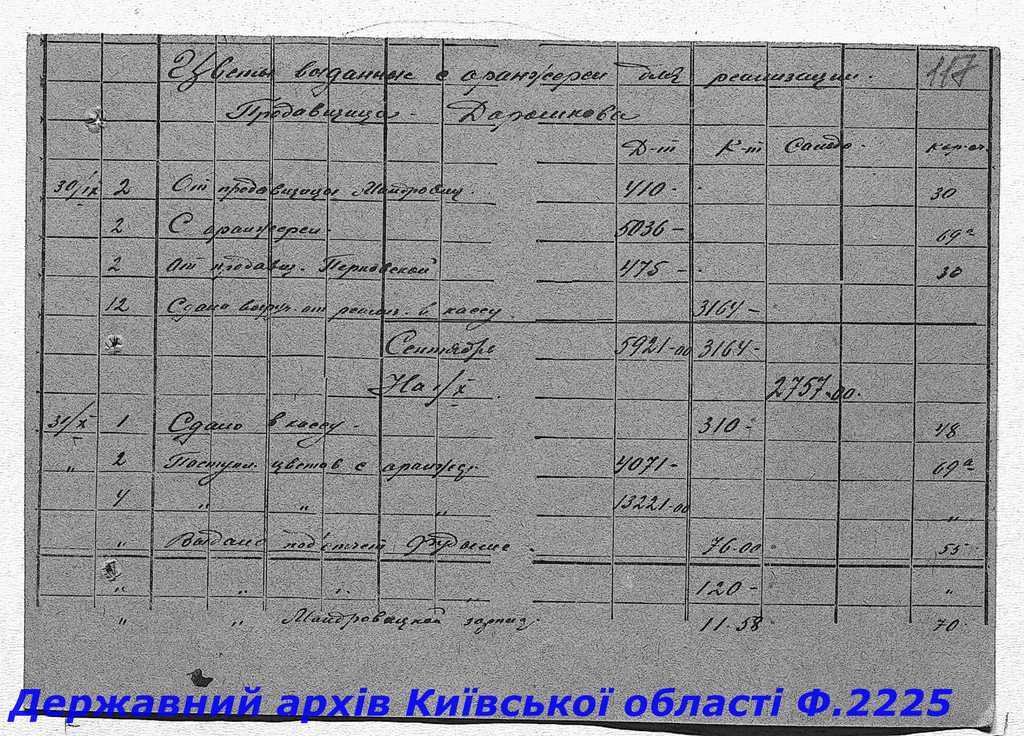 Цветы выданные с оранжереи для реализации. 117
Продавщица - Дарашкова
Д-т К-т Сальдо. кор-сч.
30/IX 2 От продавщицы 410- 30
2 С оранжереи. 5036- 69а
2 От продавщ. Перковской 475- 30
12 Сдано выруч. от реализ. в кассу. 3164-
Сентябрь 5921-00 3164-
На 1/X 2757-00.
31/X 1 Сдано в кассу. 310- 48
" 2 Поступл. цветов с оранжер. 4071- 69а
4 " " " 13221-00 "
" Выдано под'отчет 76-00 55
" " " " 120- "
" " зарпл. 11.58 70
Державний архів Київської області Ф.2225